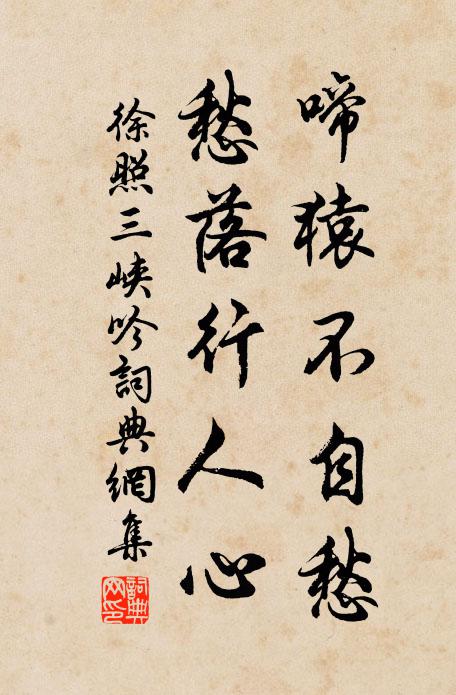 啼猿不自愁
愁落行人心
徐照三峽吟詞典網集
詞典網印